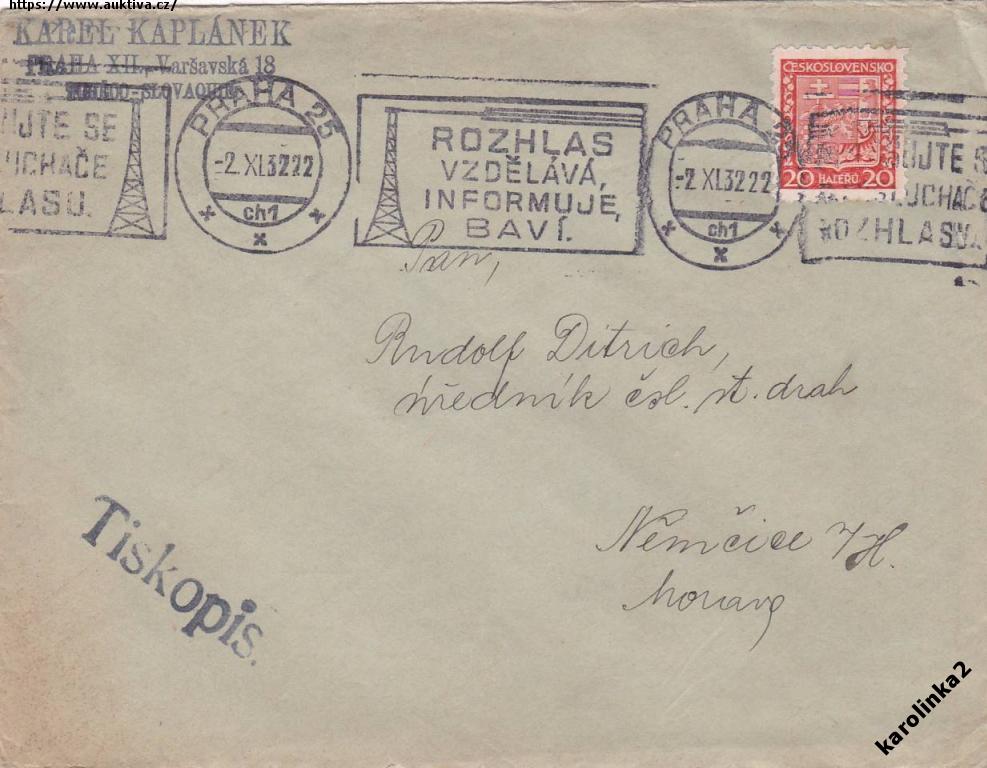 https://www.auktiva.cz/
KAREL KAPLÁNEK
PRAHA XII., Varšavská 18
-SLOVAQUIE
UJTE SE
UCHAČE
LASU.
PRAHA 25
-2.XI.3222
ch1
ROZHLAS
VZDĚLÁVÁ,
INFORMUJE,
BAVÍ.
PRAHA 2
-2.XI.3222
ch1
ČESKOSLOVENSKO
20 HALÉŘŮ 20
UJTE S
UCHAČE
ROZHLASU.
Pan,
Rudolf Ditrich,
úředník čsl. st. drah
Němčice n/H.
Morava
Tiskopis.
karolinka2